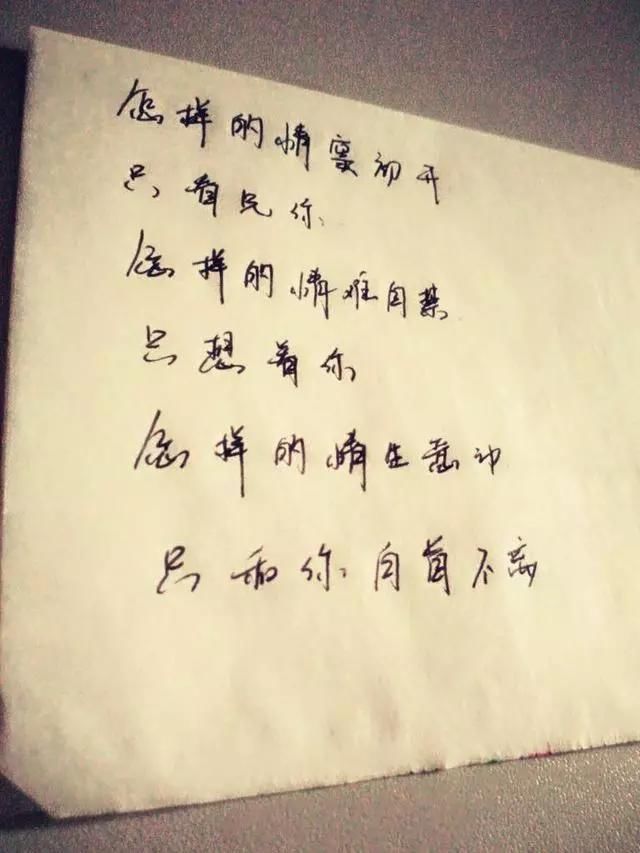 怎样的情窦初开
只看见你
怎样的情难自禁
只想着你
怎样的情生意动
只和你白首不离